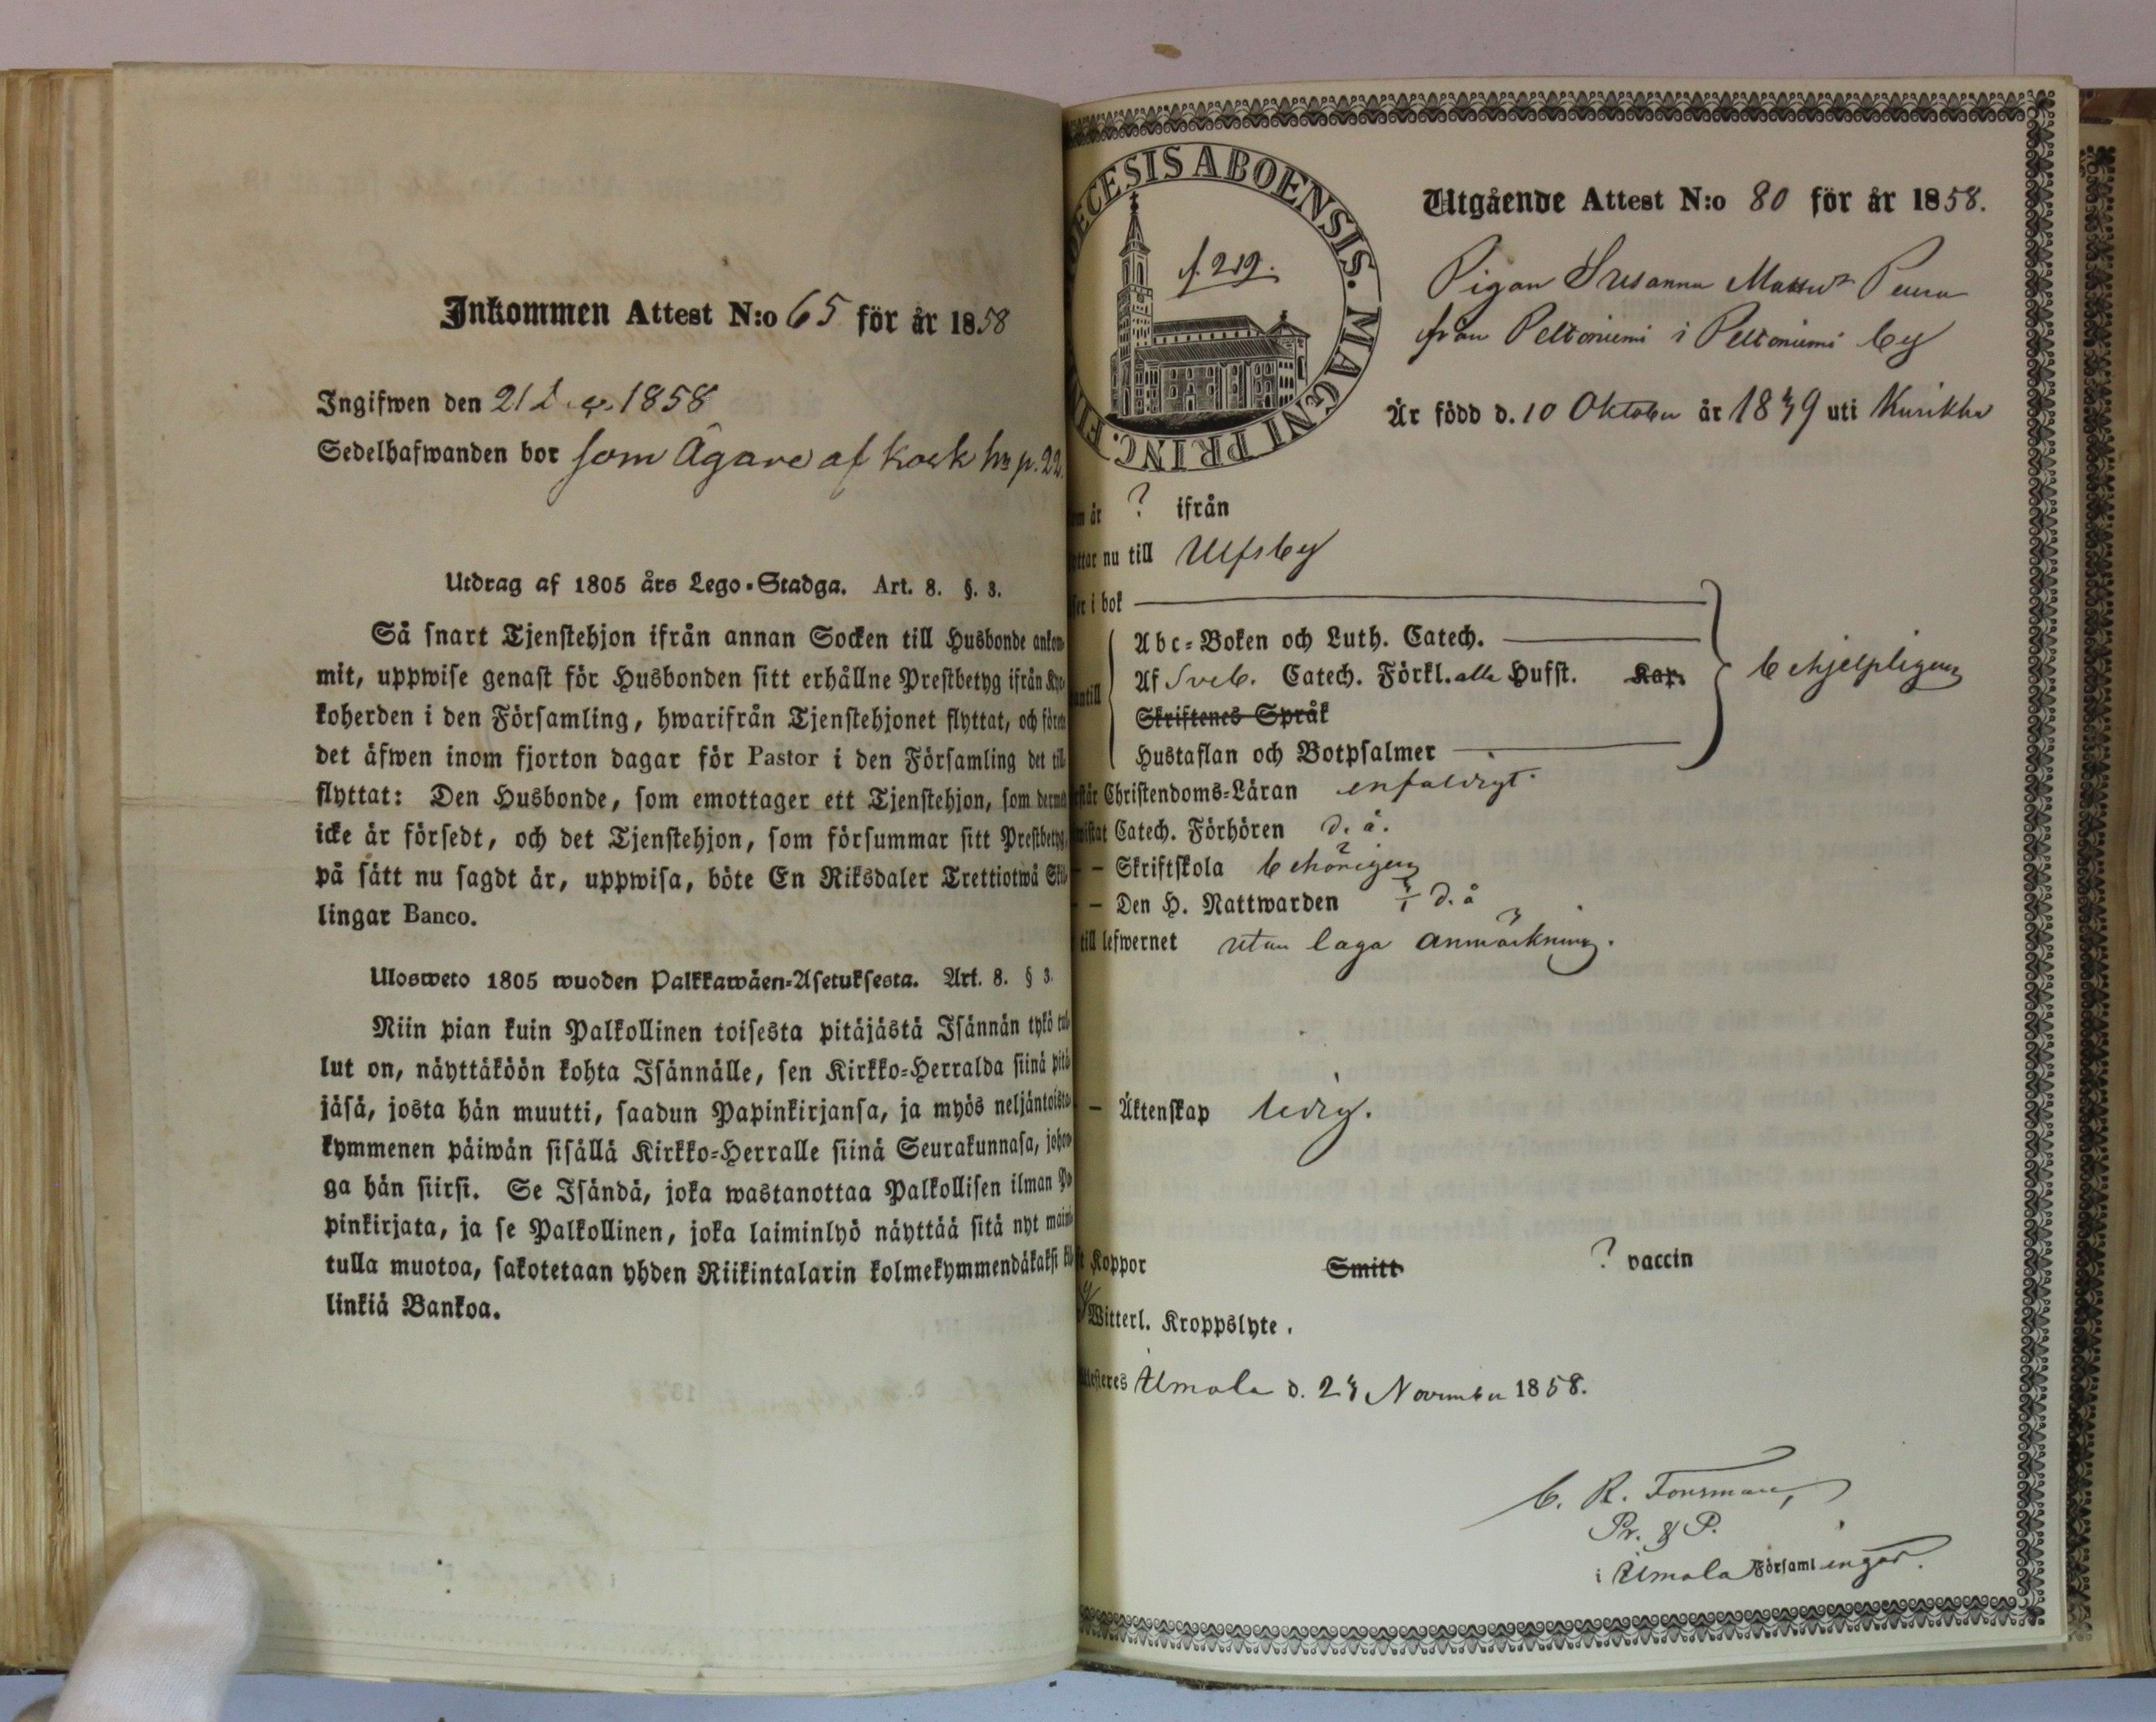 Inkommen Attest N:o 65 för år 1858
Ingifwen den 21 1858
Sedelhafwanden bor som Ägare af p. 22
Utdrag af 1805 års Lego-Stadga. Art. 8. §. 3.
Så snart Tjenstehjon ifrån annan Socken till Husbonde ankom-
mit, uppwise genast för Husbonden sitt erhållne Prestbetyg ifrån Kyr-
koherden i den Församling, hwarifrån Tjenstehjonet flyttat, och förete
det äfwen inom fjorton dagar för Pastor i den Församling det till-
flyttat: Den Husbonde, som emottager ett Tjenstehjon, som dermed
icke är försedt, och det Tjenstehjon, som försummar sitt Prestbetyg,
på sätt nu sagdt är, uppwisa, böte En Riksdaler Trettiotwå Skil-
lingar Banco.
Ulosweto 1805 wuoden Palkkawäen-Asetuksesta. Art. 8. § 3.
Niin pian kuin Palkollinen toisesta pitäjästä Isännän tykö tul-
lut on, näyttäköön kohta Isännälle, sen Kirkko-Herralda siinä pitä-
jäsä, josta hän muutti, saadun Papinkirjansa, ja myös neljäntoista-
kymmenen päiwän sisällä Kirkko-Herralle siinä Seurakunnasa, johon-
ga hän siirsi. Se Isändä, joka wastanottaa Palkollisen ilman Pa-
pinkirjata, ja se Palkollinen, joka laiminlyö näyttää sitä nyt maini-
tulla muotoa, sakotetaan yhden Riikintalarin kolmekymmendäkaksi kil-
linkiä Bankoa.
DECESIS ABOENSIS. MAGNI PRINC. FIN
f. 219.
Utgående Attest N:o 80 för år 1858.
Pigan Susanna Mattsdr Peura
från Peltoniemi i Peltoniemi by
Är född d. 10 Oktober år 1839 uti Kurikka
år ? ifrån
nu till Ulfsby
i bok
Abc-Boken och Luth. Catech.
Af Sveb. Catech. Förkl. alla Hufst. Kap.
behjelpligen
Skriftenes Språk
Hustaflan och Botpsalmer
Christendoms-Läran enfaldigt.
Catech. Förhören d. å.
— Skriftskola behörigen
— Den H. Nattwarden d. å
till lefwernet utan laga anmärkning.
— Äktenskap ledig.
Koppor Smitt ? vaccin
Witterl. Kroppslyte.
Ilmola d. 24 November 1858.
C. R. Forsman,
Pr. & P.
i Ilmola Församlingar.